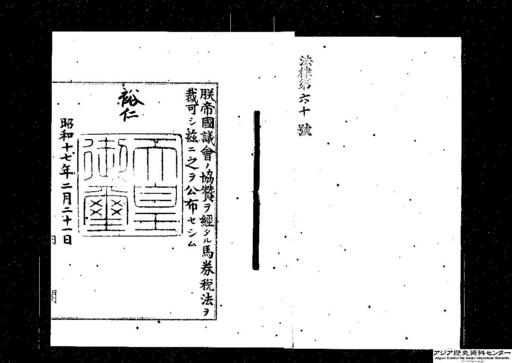 法律第六十號
朕帝國議會ノ協贊ヲ經タル馬券稅法ヲ
裁可シ茲ニ之ヲ公布セシム
裕仁
天皇御璽
昭和十七年二月二十一日
アジア歴史資料センター
Japan Center for Asian Historical Records